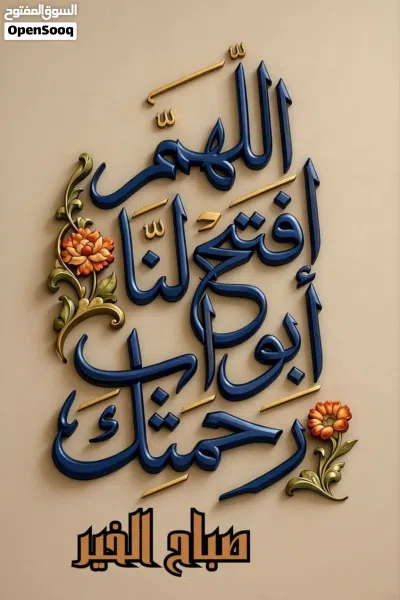 السوق المفتوح
OpenSooq
اللهمّ
افتح لنا
أبواب
رحمتك
صباح الخير